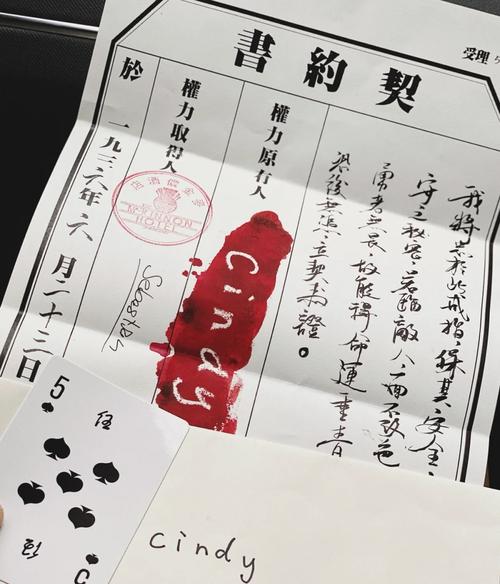 契約書
受理
我將忠於此戒指，保其安全，
守之秘密。若臨敵人，面不改色
勇者無畏，故能得命運垂青
恐後無憑，立契為證。
權力原有人
Cindy
權力取得人
McKINNON
HOTEL
於一九三六年六月二十三日
5
5
cindy